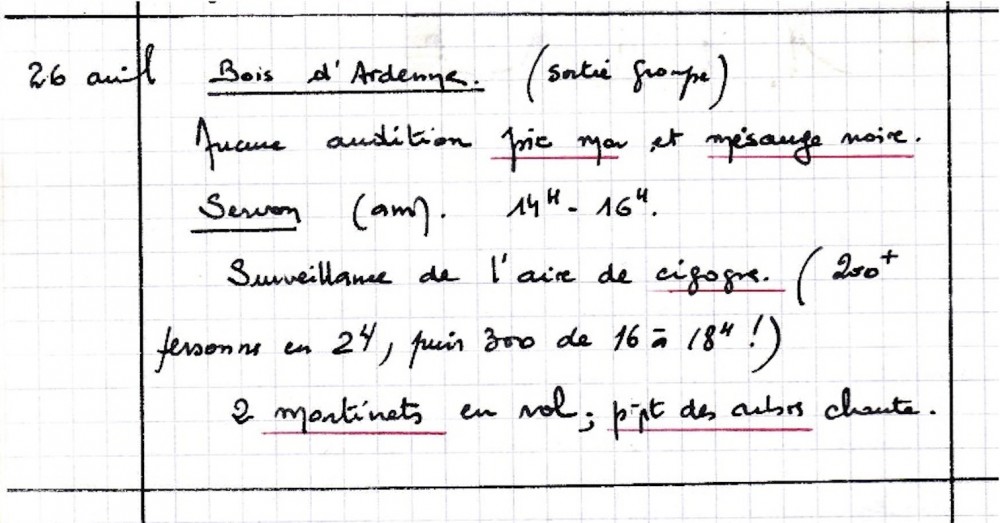 26 avril Bois d'Ardenne. (sortie groupe)
Aucune audition pic mar et mésange noire.
Servon (am). 14H - 16H.
Surveillance de l'aire de cigogne. (200+
personnes en 2H, puis 300 de 16 à 18H !)
2 martinets en vol ; pipit des arbres chante.